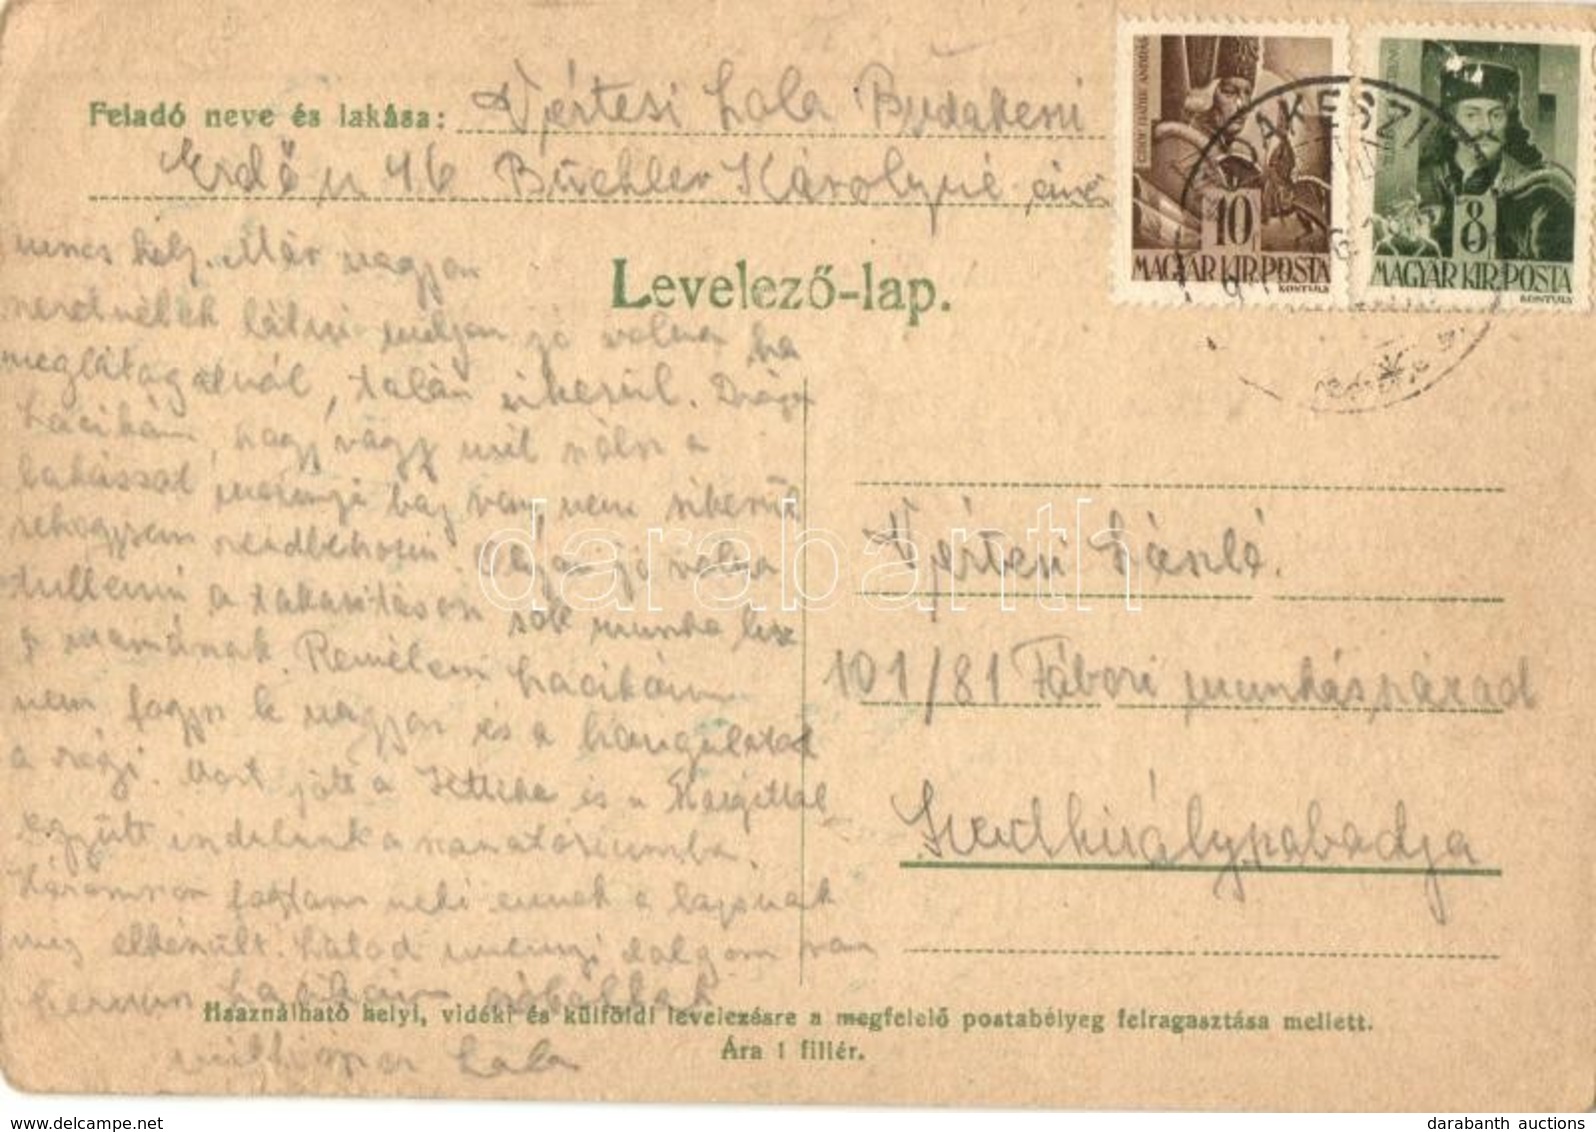 Feladó neve és lakása: Vértesi Lala Budakeszi
Erdő u 46 Büchler Károlyné
CSÓK: HADIK ANDRÁS
10
MAGYAR KIR. POSTA
KONTULY
8
MAGYAR KIR. POSTA
KONTULY
BUDAKESZI
Levelező-lap.
nincs hely. Már nagyon
szeretnélek látni milyen jó volna ha
meglátogatnál, talán sikerül. Drága
Lacikám, hogy vagy mit szólsz a
lakással mennyi baj van, nem sikerül
sehogysem rendbehozni. Olyan jó volna
túllenni a takarításon sok munka lesz
a mamának. Remélem Lacikám
nem fogysz le nagyon és a hangulatod
a régi. Most jött a és a Margittal
együtt indulunk a szanatóriumba.
Háromszor fogtam neki ennek a lapnak
míg elkészült. Látod mennyi dolgom van
Lacikám
milliószor Lala
Vértesi László.
101/81 Tábori munkásszázad
Szentkirályszabadja
darabanth
Használható helyi, vidéki és külföldi levelezésre a megfelelő postabélyeg felragasztása mellett.
Ára 1 fillér.
www.delcampe.net
darabanth auctions